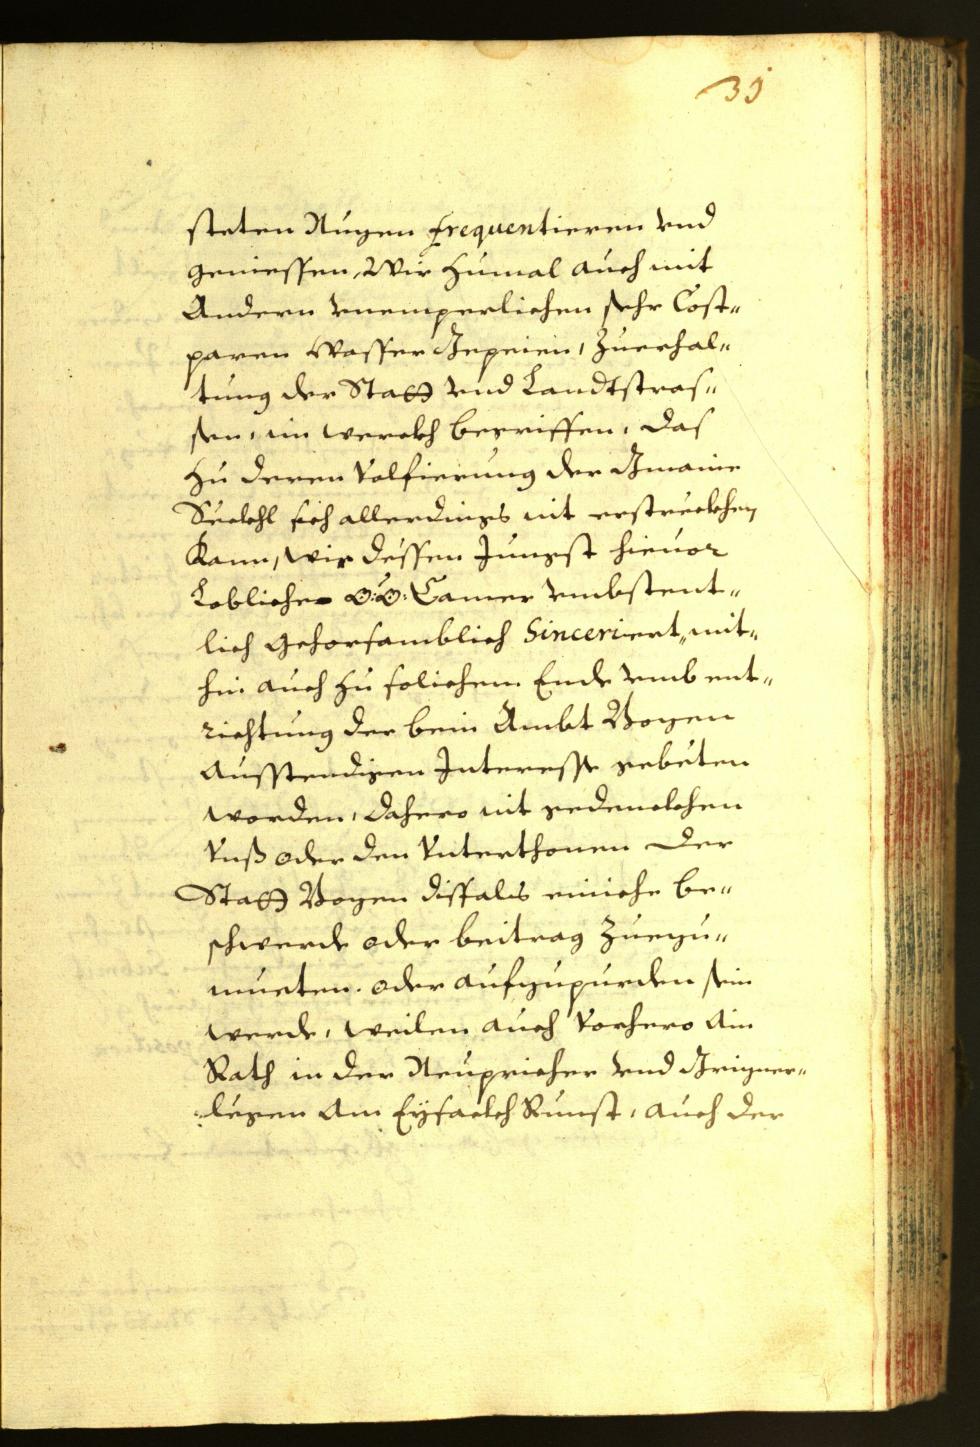 39
steten Nuzen frequentieren vnd
geniessen, Wir zumal auch mit
Andern vnemperlichen sehr Cost„
paren Wasser Gepeien, zuerhal„
tung der Statt vnd Landtstras„
sen, im werckh begriffen, das
zu deren Volfierung der Gmaine
Seckhl sich allerdings nit erstreckhen
kann, wir dessen Jungst hieuor
Lobliche O:Ö: Camer vmbstent„
lich gehorsamblich Sinceriert, mit„
hin auch zu solichem Ende vmb ent„
richtung der beim Ambt Bozen
Ausstendigen Interesse gebeten
worden, dahero nit gedenckhen
Vnß oder den Vnterthonen der
Statt Bozen dissfals einiche be„
schwerde oder beitrag zuezu„
mueten oder aufzupurden sein
werde, weilen auch vorhero Ain
Rath in der Neupricher vnd Grizner„
legen Am Eysackh Runst, auch der